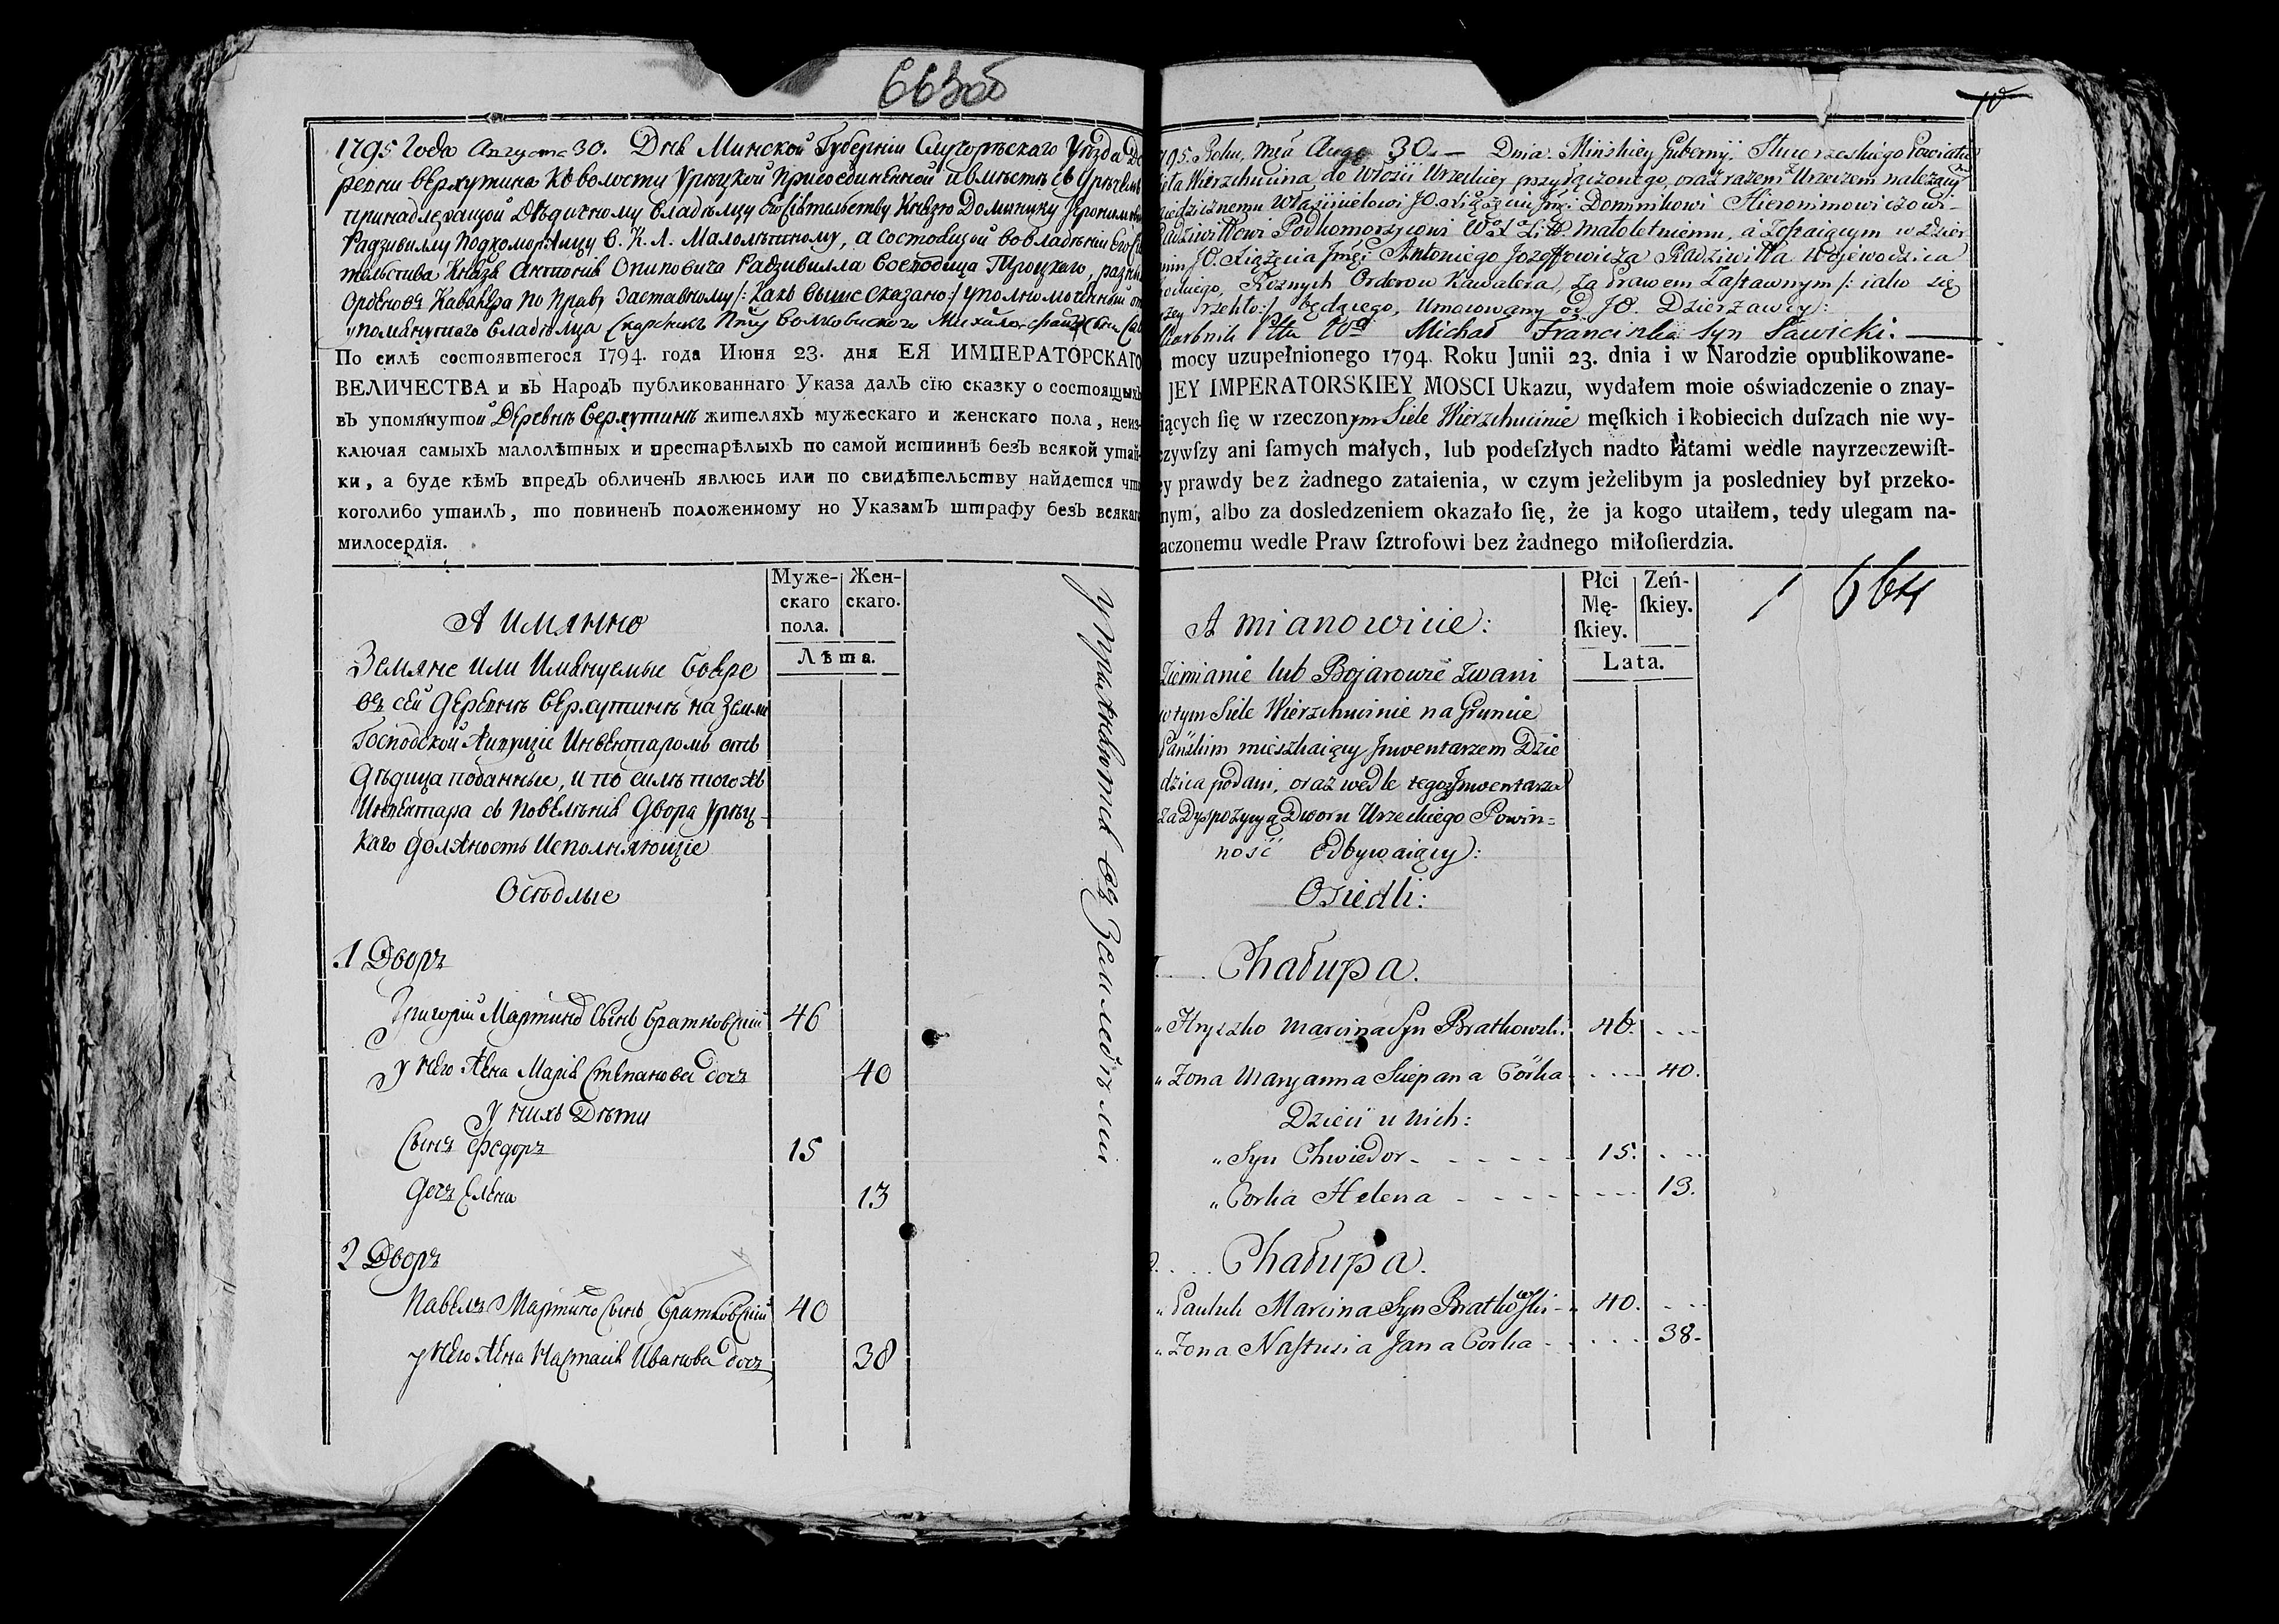 663об
1795 Года Августа 30. Дня Минской Губерніи Слуцорѣскаго Уѣзда Де
ревни Верхутина Къ волости Урѣцкой присоединенной и вмѣстѣ съ Урѣчемъ
принадлежащой Дѣдичному Владѣльцу Его Сіятельству Князю Доминику
Радзивиллу Подкоморѣицу В. К. Л. Малолѣтному, а состоящой во владѣніи Его Сія
тельства Князя Антонія Радзивилла Воеводица Троцкаго, разны
Орденовъ Кавалера по праву Заставному /: какъ выше сказано :/ уполномоченный
упомянутаго Владѣльца Скарбникъ Волковиского Михайло
По силѣ состоявтегося 1794. года Июня 23. дня ЕЯ ИМПЕРАТОРСКАГО
ВЕЛИЧЕСТВА и въ Народъ публикованнаго Указа далъ сїю сказку о состоящыхъ
въ упомянутой Деревнѣ Верхутинѣ жителяхъ мужескаго и женскаго пола, неиз-
ключая самыхъ малолѣтных и престарѣлыхъ по самой истиинѣ безъ всякой утай-
ки, а буде кѣмъ впредь обличенъ явлюсь или по свидѣтельству найдется что
коголибо утаилъ, то повиненъ положенному но Указамъ штрафу безъ всякаго
милосердїя.
Муже-
скаго
пола.
Жен-
скаго.
Лѣта.
А имянно
Земляне или Имянуемые Бояре
въ сей деревнѣ Верхутинѣ на земли
Господской Живущіе Инвентаромъ отъ
Дѣдица поданные, и по силѣ того жъ
Инвентара съ повелѣнія Двора Урѣц-
каго должность Исполняющіе
Осѣдлые
1 Дворъ
Григорій Мартина Сынъ Братковскій 46
у него Жена Марія Степанова дочь 40
у нихъ Дѣти
Сынъ Федоръ 15
дочь Елена 13
2 Дворъ
Павелъ Мартина Сынъ Братковскій 40
у него Жена Настасія Иванова дочь 38
10
795. Roku, Mca Aug 30. — Dnia. Mińskiey Gubernij. Słuworzeskiego Powiatu
Sioła Wierzchucina do Włości Urzeckiey przyłączonego, oraz razem z Urzeczem należący
Dziedzicznemu Właścicielowi J.O. Xiążęciu Jmći Dominikowi Hieronimowiczowi
Radziwiłłowi Podkomorzycowi Małoletniemu, a Zostaiącym w Dzier
J.O. Xiążęcia Jmći Antoniego Jozeffowicza Radziwiłła Wojewodzica
Trockiego, Roznych Orderow Kawalera, za Prawem Zastawnym /: iako się
wyżey rzekło :/ będącego, Umocowany od J.O. Dzierzawcy:
Skarbnik Ptu Michał Franciszka Syn Sawicki.
mocy uzupełnionego 1794. Roku Junii 23. dnia i w Narodzie opublikowane-
JEY IMPERATORSKIEY MOSCI Ukazu, wydałem moie oświadczenie o znay-
iących ſię w rzeczonym Siele Wierzchucinie męſkich i kobiecich duſzach nie wy-
czywſzy ani ſamych małych, lub podeſzłych nadto latami wedle nayrzeczewiſt-
ey prawdy bez żadnego zataienia, w czym jeżelibym ja posledniey był przeko-
nym, albo za dosledzeniem okazało ſię, że ja kogo utaiłem, tedy ulegam na-
aczonemu wedle Praw ſztrofowi bez żadnego miłoſierdzia.
Płci
Mę-
ſkiey.
Zeń-
ſkiey.
Lata.
1 664
A mianowicie:
Ziemianie lub Bojarowie zwani
w tym Siele Wierzchucinie na Gruncie
Pańskim mieszkaiący Jnwentarzem Dzie
dzica podani, oraz wedle tegoż Jnwentarza
za Dyspozycyą Dworu Urzeckiego Powin=
ność Odbywaiący:
Osiedli:
Chałupa.
Hryszko Marcina Syn Bratkowski 46.
Zona Maryanna Sciepana Córka 40.
Dzieci u nich:
Syn Chwiedor 15.
Corka Helena 13.
Chałupa.
Pauluk Marcina Syn Bratkowski 40.
Zona Nastusia Jana Corka 38.